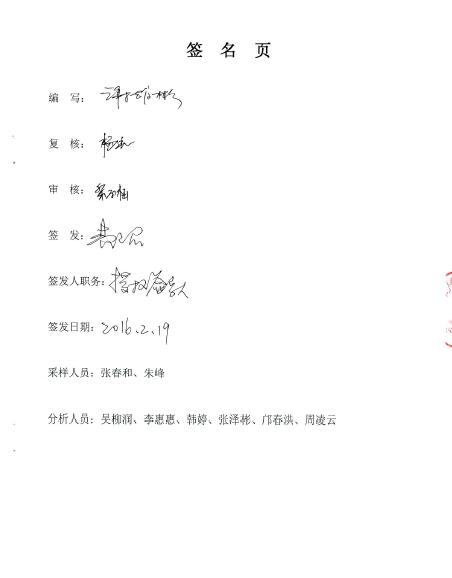 签 名 页
编 写：
复 核：
审 核：
签 发：
签发人职务：授权签字人
签发日期：2016.2.19
采样人员：张春和、朱峰
分析人员：吴柳润、李惠惠、韩婷、张泽彬、邝春洪、周凌云